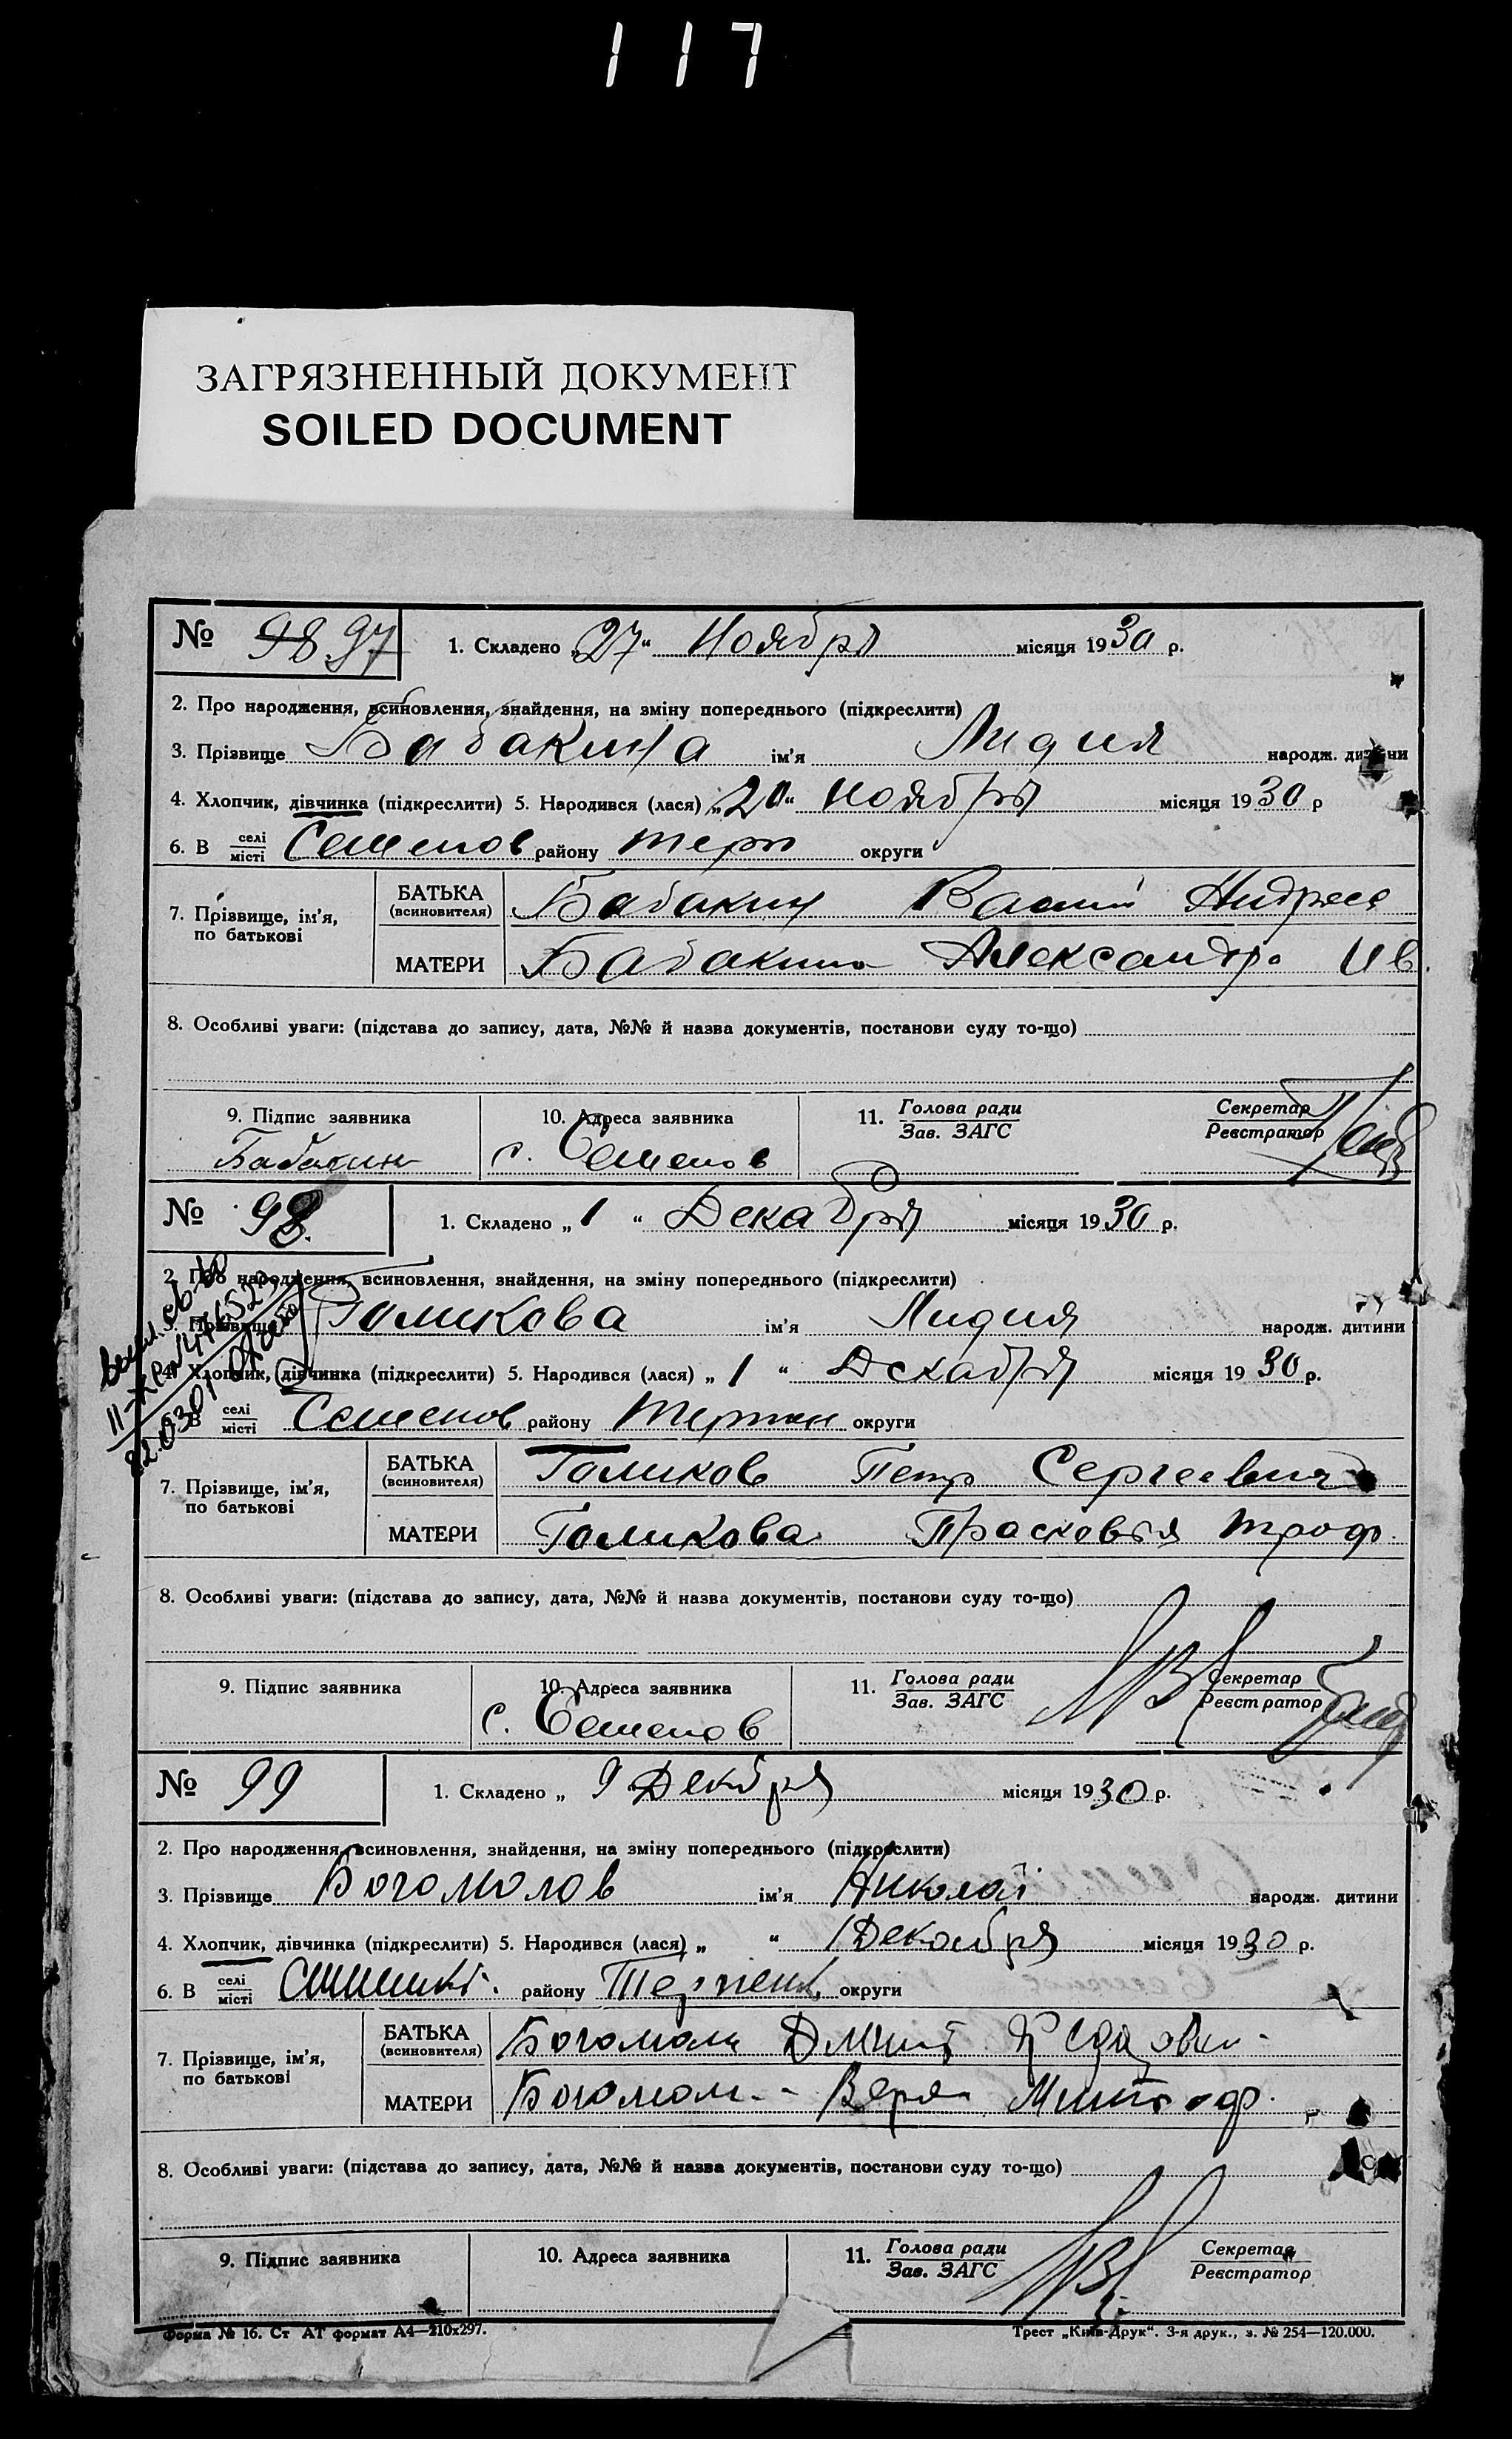 117
ЗАГРЯЗНЕННЫЙ ДОКУМЕНТ
SOILED DOCUMENT
№ 98 97 1. Складено „27“ Ноября місяця 1930 р.
2. Про народження, всиновлення, знайдення, на зміну попереднього (підкреслити)
3. Прізвище Бабакина ім'я Лидия народж. дитини
4. Хлопчик, дівчинка (підкреслити) 5. Народився (лася) „20“ Ноября місяця 1930 р
6. В селі/місті Семенов району Терп округи
7. Прізвище, ім'я, по батькові
БАТЬКА (всиновителя) Бабакин Васил Андрее
МАТЕРИ Бабакина Александра Ив.
8. Особливі уваги: (підстава до запису, дата, №№ й назва документів, постанови суду то-що)
9. Підпис заявника 10. Адреса заявника 11. Голова ради/Зав. ЗАГС Секретар/Реєстратор
Бабакин с. Семенов
№ 98. 1. Складено „1“ Декабря місяця 1930 р.
2. Про народження, всиновлення, знайдення, на зміну попереднього (підкреслити)
3. Прізвище Голикова ім'я Лидия народж. дитини
4. Хлопчик, дівчинка (підкреслити) 5. Народився (лася) „1“ Декабря місяця 1930 р.
6. В селі/місті Семенов району Терпен округи
7. Прізвище, ім'я, по батькові
БАТЬКА (всиновителя) Голиков Петр Сергеевич
МАТЕРИ Голикова Прасковья Троф.
8. Особливі уваги: (підстава до запису, дата, №№ й назва документів, постанови суду то-що)
9. Підпис заявника 10. Адреса заявника 11. Голова ради/Зав. ЗАГС Секретар/Реєстратор
с. Семенов
№ 99 1. Складено „9 Декабря місяця 1930 р.
2. Про народження, всиновлення, знайдення, на зміну попереднього (підкреслити)
3. Прізвище Богомолов ім'я Николай народж. дитини
4. Хлопчик, дівчинка (підкреслити) 5. Народився (лася) „ “ 1 Декабря місяця 1930 р.
6. В селі/місті району Терпен. округи
7. Прізвище, ім'я, по батькові
БАТЬКА (всиновителя) Богомол Дмит
МАТЕРИ Богомол Вера Митроф.
8. Особливі уваги: (підстава до запису, дата, №№ й назва документів, постанови суду то-що)
9. Підпис заявника 10. Адреса заявника 11. Голова ради/Зав. ЗАГС Секретар/Реєстратор
Форма № 16. Ст АТ формат А4—210х297. Трест „Київ-Друк“. 3-я друк., з. № 254—120.000.